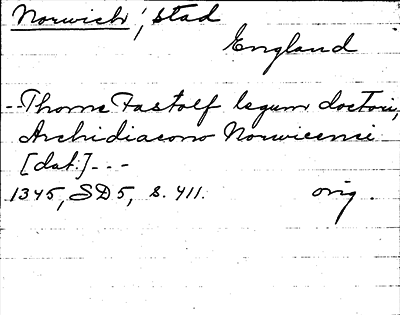 Norwich, stad
England
- Thome Fastolf legum doctori,
Archidiacono Norwicensi
[dat.] - - -
1345, SD5, s. 411. orig.